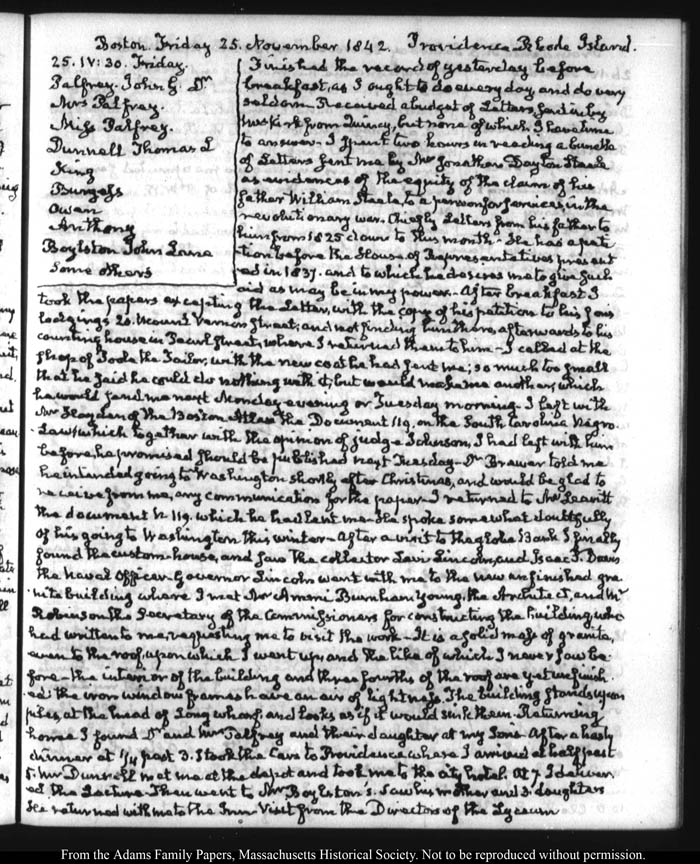 Boston. Friday 25. November 1842. Providence Rhode Island.
25. IV:30. Friday.
Palfrey. John G. Dr
Mrs Palfrey.
Miss Palfrey.
Dunnell Thomas L
King
Burgess
Owen
Anthony
Boylston John Lane
Some others
Finished the record of yesterday before
breakfast, as I ought to do every day and do very
seldom. Received a budget of Letters sent in by
Mrs Kirk from Quincy, but none of which I have time
to answer. I spent two hours in reading a bundle
of Letters sent me by Mr Jonathan Dayton Steele
as evidences of the equity of the claim of his
father William Steele, to a pension for services in the
revolutionary war. Chiefly Letters from his father to
him from 1825 down to this month. He has a peti
tion before the House of Representatives present
ed in 1837. and to which he desires me to give such
aid as may be in my power. After breakfast I
took the papers excepting the Letters, with the copy of his petition to his
lodgings 20. Mount Vernon Street, and not finding him there, afterwards to his
counting house in Pearl Street, where I returned them to him. I called at the
shop of the Tailor, with the new coat he had sent me; so much too small
that he said he could do nothing with it, but would make me another, which
he would send me next Monday evening or Tuesday morning. I left with
Mr of the Boston Atlas the Document 119, on the South Carolina Negro
Law, which together with the opinion of judge Johnson, I had left with him
before, he promised should be published next Tuesday. Dr Brewer told me
he intended going to Washington shortly after Christmas, and would be glad to
receive from me, any communication for the paper. I returned to Mr Leavitt
the document N. 119. which he had lent me. He spoke somewhat doubtfully
of his going to Washington this winter. After a visit to the Globe Bank I finally
found the custom-house, and saw the collector Levi Lincoln, and Isaac P. Davis
the Naval Officer. Governor Lincoln went with me to the new unfinished gra
nite building where I met Mr Ammi Burnham Young, the Architect, and Mr
Robinson the Secretary of the Commissioners for constructing the building, who
had written to me, requesting me to visit the work. It is a solid mass of granite,
even to the roof, upon which I went up, and the like of which I never saw be
fore. the interior of the building and three fourths of the roof are yet unfinish
ed. the iron window frames have an air of lightness. The building stands upon
piles, at the head of Long wharf, and looks as if it would sink them. Returning
home I found Dr and Mrs Palfrey and their daughter at my Sons. After a hasty
dinner at 1/4 past 3. I took the Cars to Providence where I arrived at half past
5. Mr Dunnell met me at the depot and took me to the city hotel. At 7 I deliver
ed the Lecture. Then went to Mr Boylston's. saw his mother and 3 daughters
He returned with me to the Inn. Visit from the Directors of the Lyceum
From the Adams Family Papers, Massachusetts Historical Society. Not to be reproduced without permission.